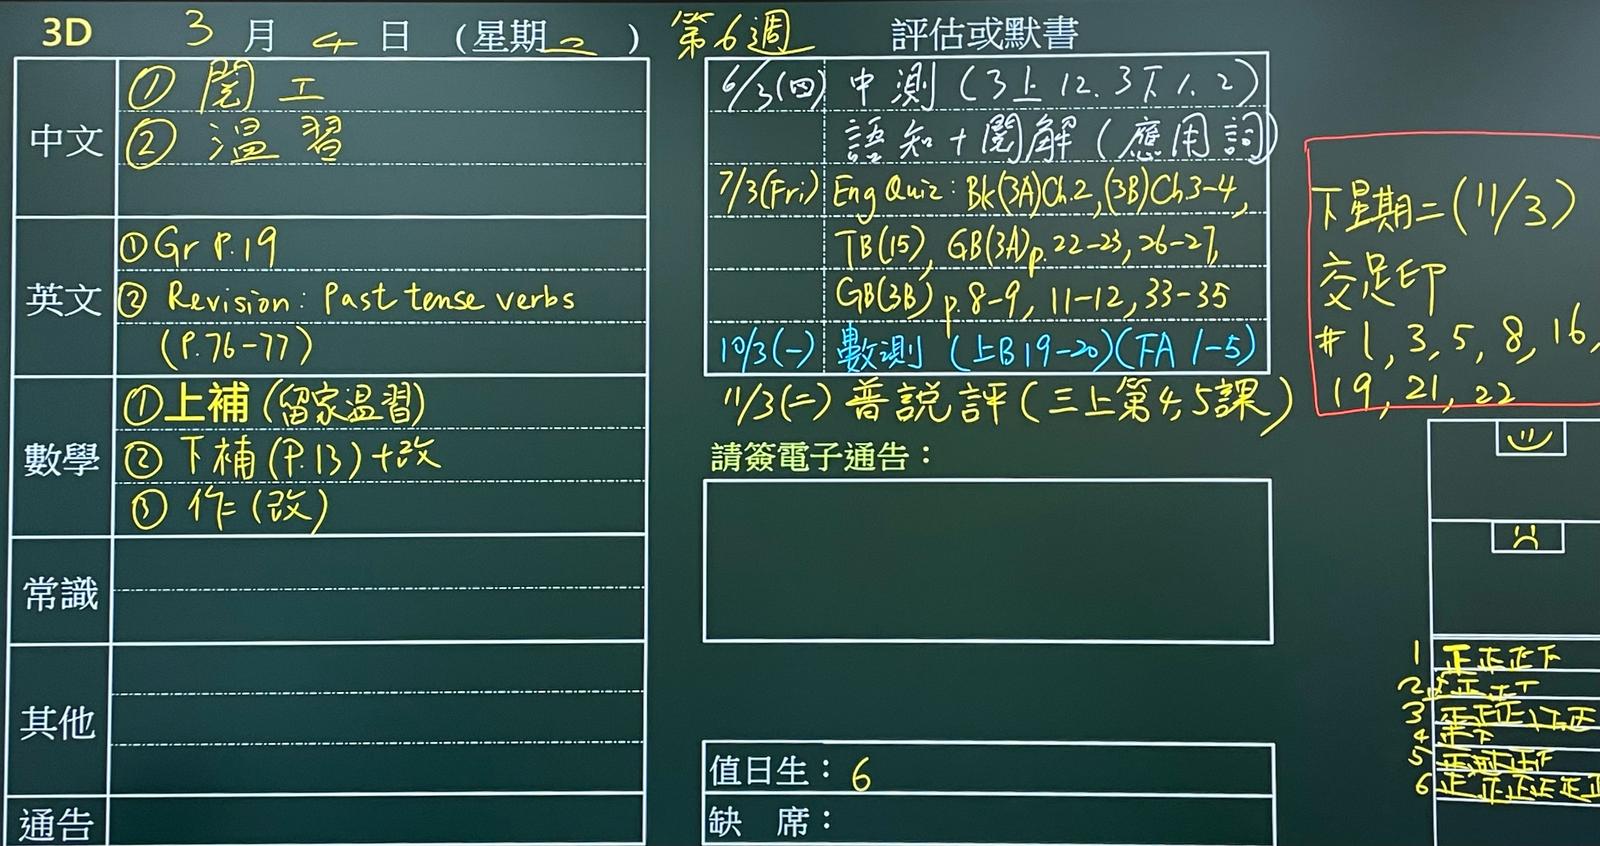 3D 3月4日 (星期二) 第6週
中文
① 閱工
② 溫習
英文
① Gr P.19
② Revision: Past tense verbs
(P.76-77)
數學
① 上補 (留家溫習)
② 下補 (P.13) +改
③ 作 (改)
常識
其他
通告
評估或默書
6/3(四) 中測 (3上12. 3下1. 2)
語知+閱解 (應用詞)
7/3(Fri) Eng Quiz: Bk(3A)Ch.2, (3B)Ch.3-4,
TB(15), GB(3A)p. 22-23, 26-27,
GB(3B) p.8-9, 11-12, 33-35
10/3(一) 數測 (上B19-20)(FA 1-5)
11/3(二) 普說評 (三上第4,5課)
請簽電子通告：
值日生：6
缺 席：
下星期二 (11/3)
交足印
# 1, 3, 5, 8, 16,
19, 21, 22
1 正正正下
2
3
4 正下
5
6